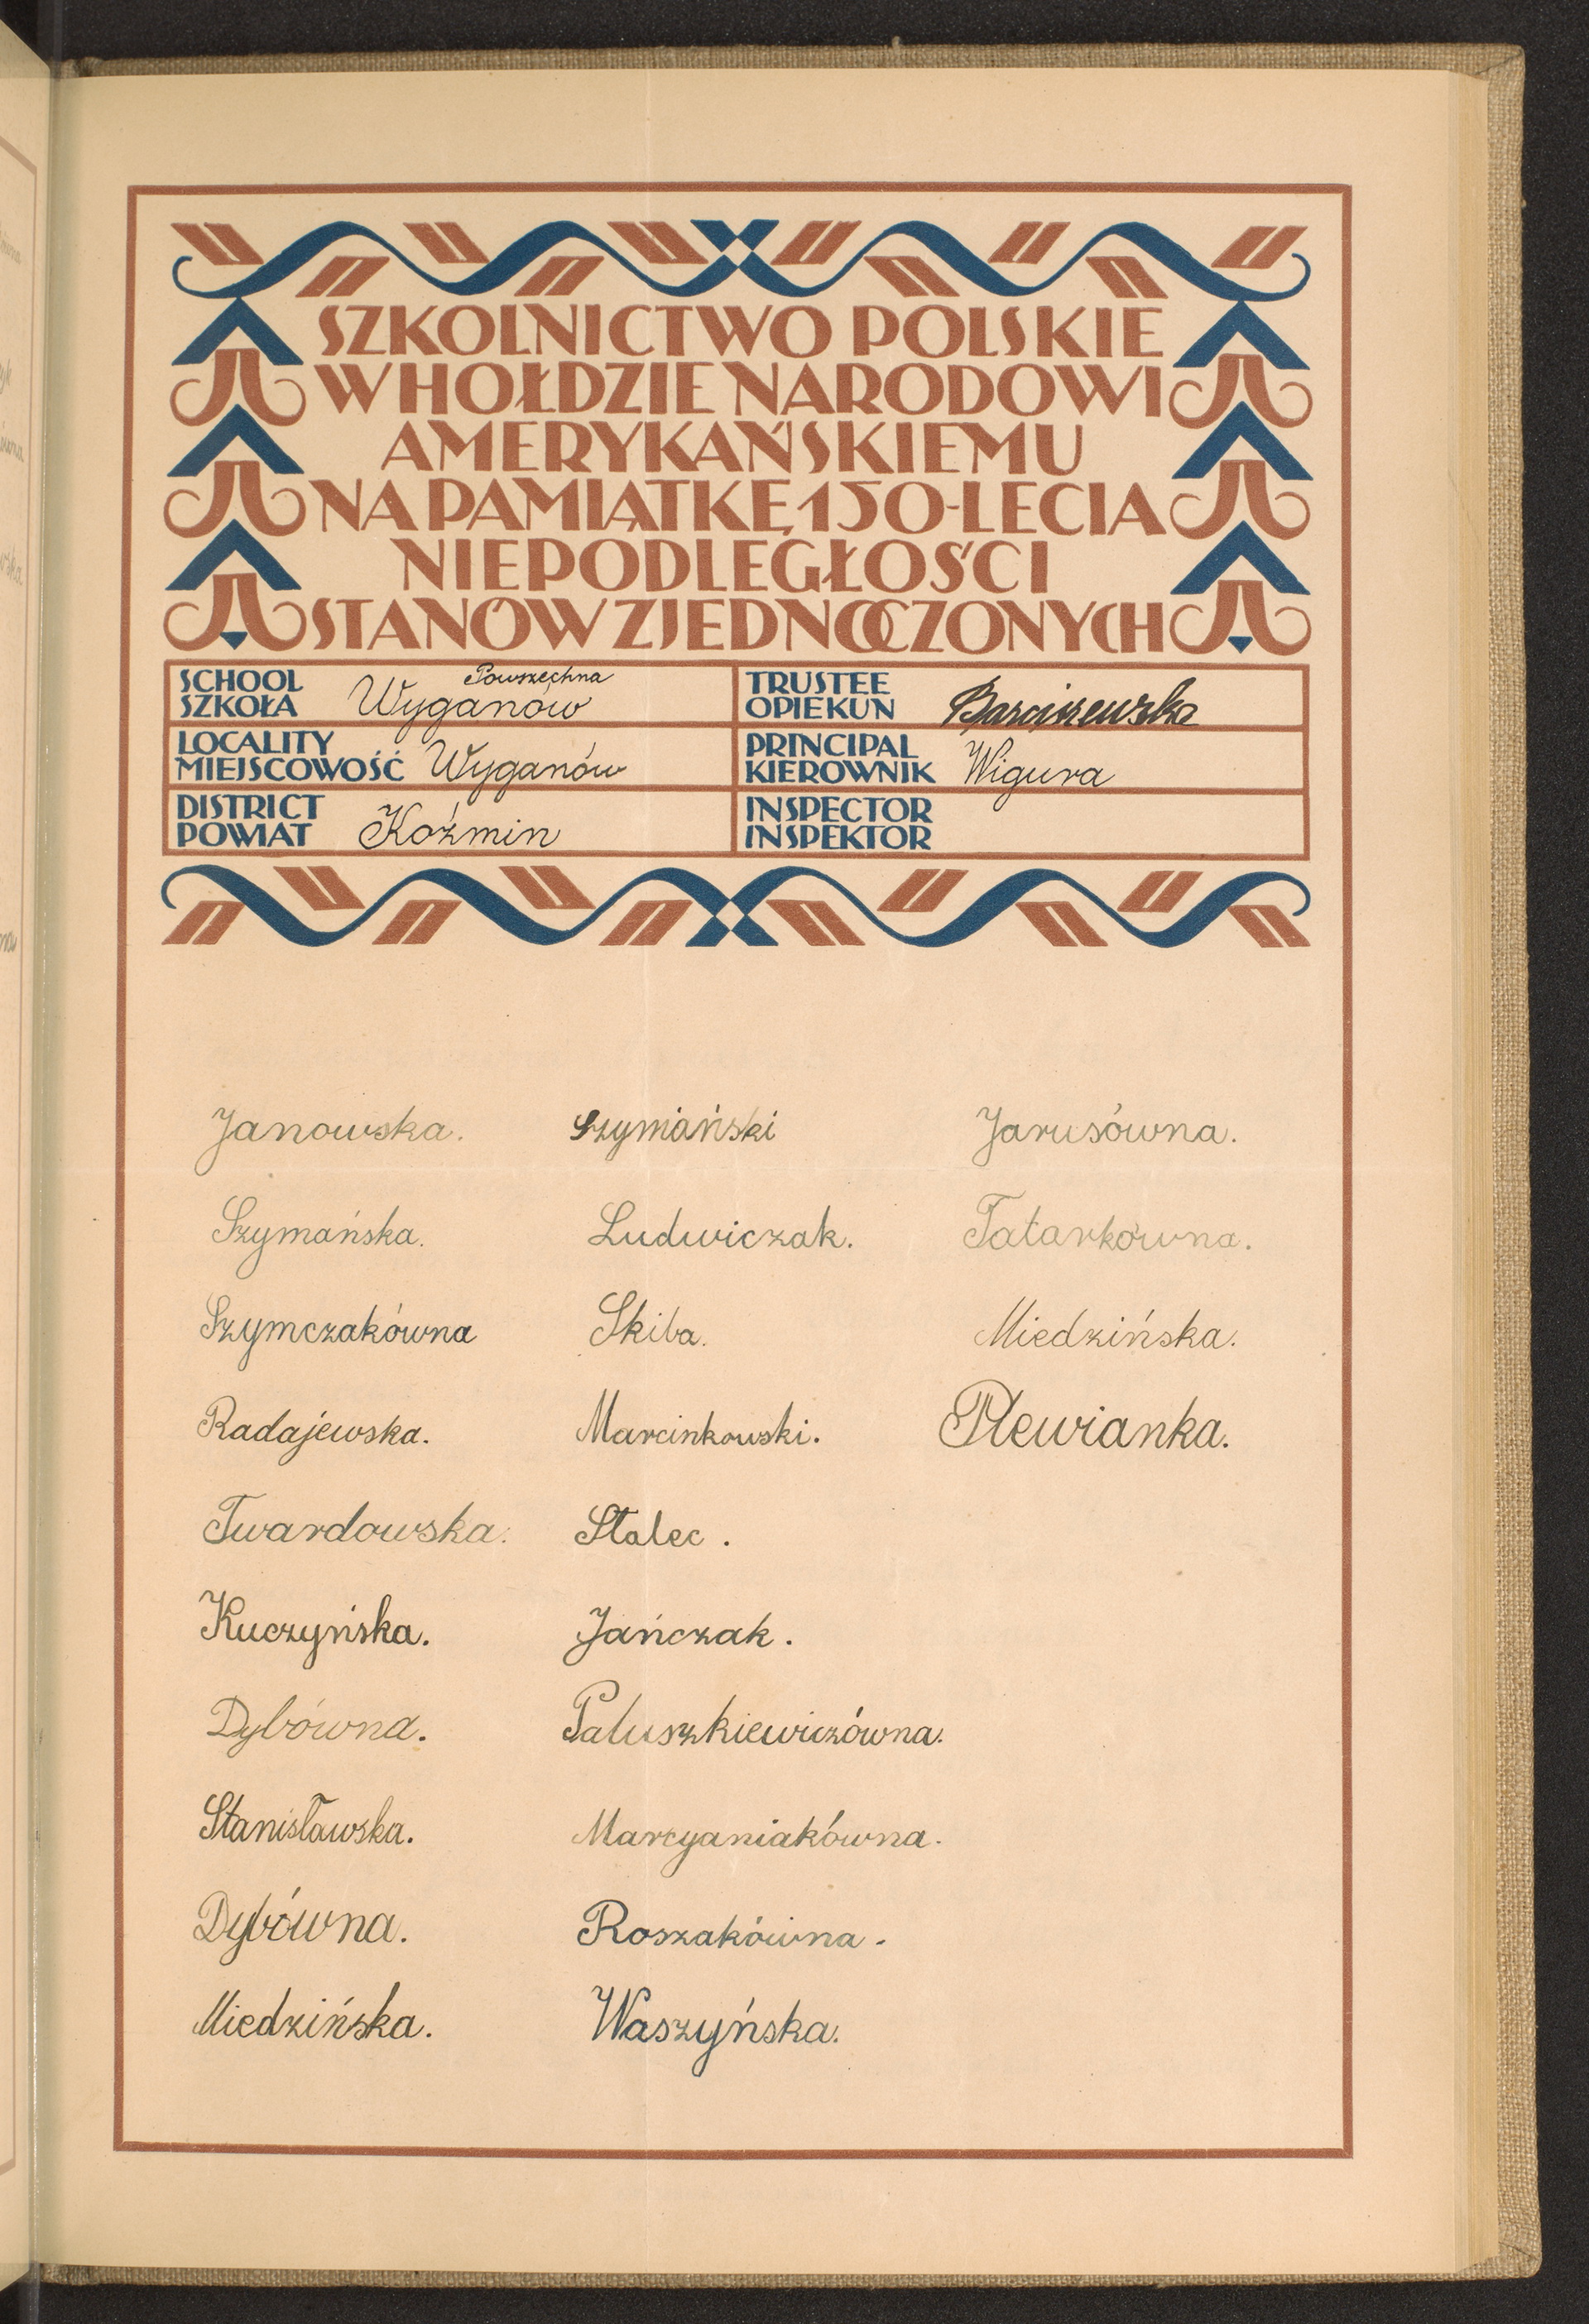 SZKOLNICTWO POLSKIE
W HOŁDZIE NARODOWI
AMERYKAŃSKIEMU
NA PAMIĄTKĘ 150-LECIA
NIEPODLEGŁOŚCI
STANÓW ZJEDNOCZONYCH
SCHOOL
SZKOŁA
Powszechna
Wyganów
TRUSTEE
OPIEKUN
Barciszewska
LOCALITY
MIEJSCOWOŚĆ
Wyganów
PRINCIPAL
KIEROWNIK
Wigura
DISTRICT
POWIAT
Koźmin
INSPECTOR
INSPEKTOR
Janowska.
Szymańska.
Szymczakówna
Radajewska.
Twardowska.
Kuczyńska.
Dybówna.
Stanisławska.
Dybówna.
Miedzińska.
Szymański
Ludwiczak.
Skiba.
Marcinkowski.
Stalec.
Jańczak.
Paluszkiewiczówna.
Marcyaniakówna.
Roszakówna.
Waszyńska.
Jarusówna.
Tatarkówna.
Miedzińska.
Plewianka.